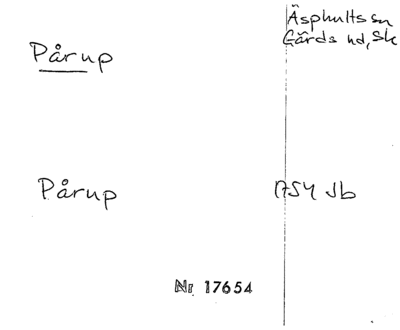 Äsphults sn
Gärds hd, Sk
Pårup
Pårup 1754 Jb
Nr 17654